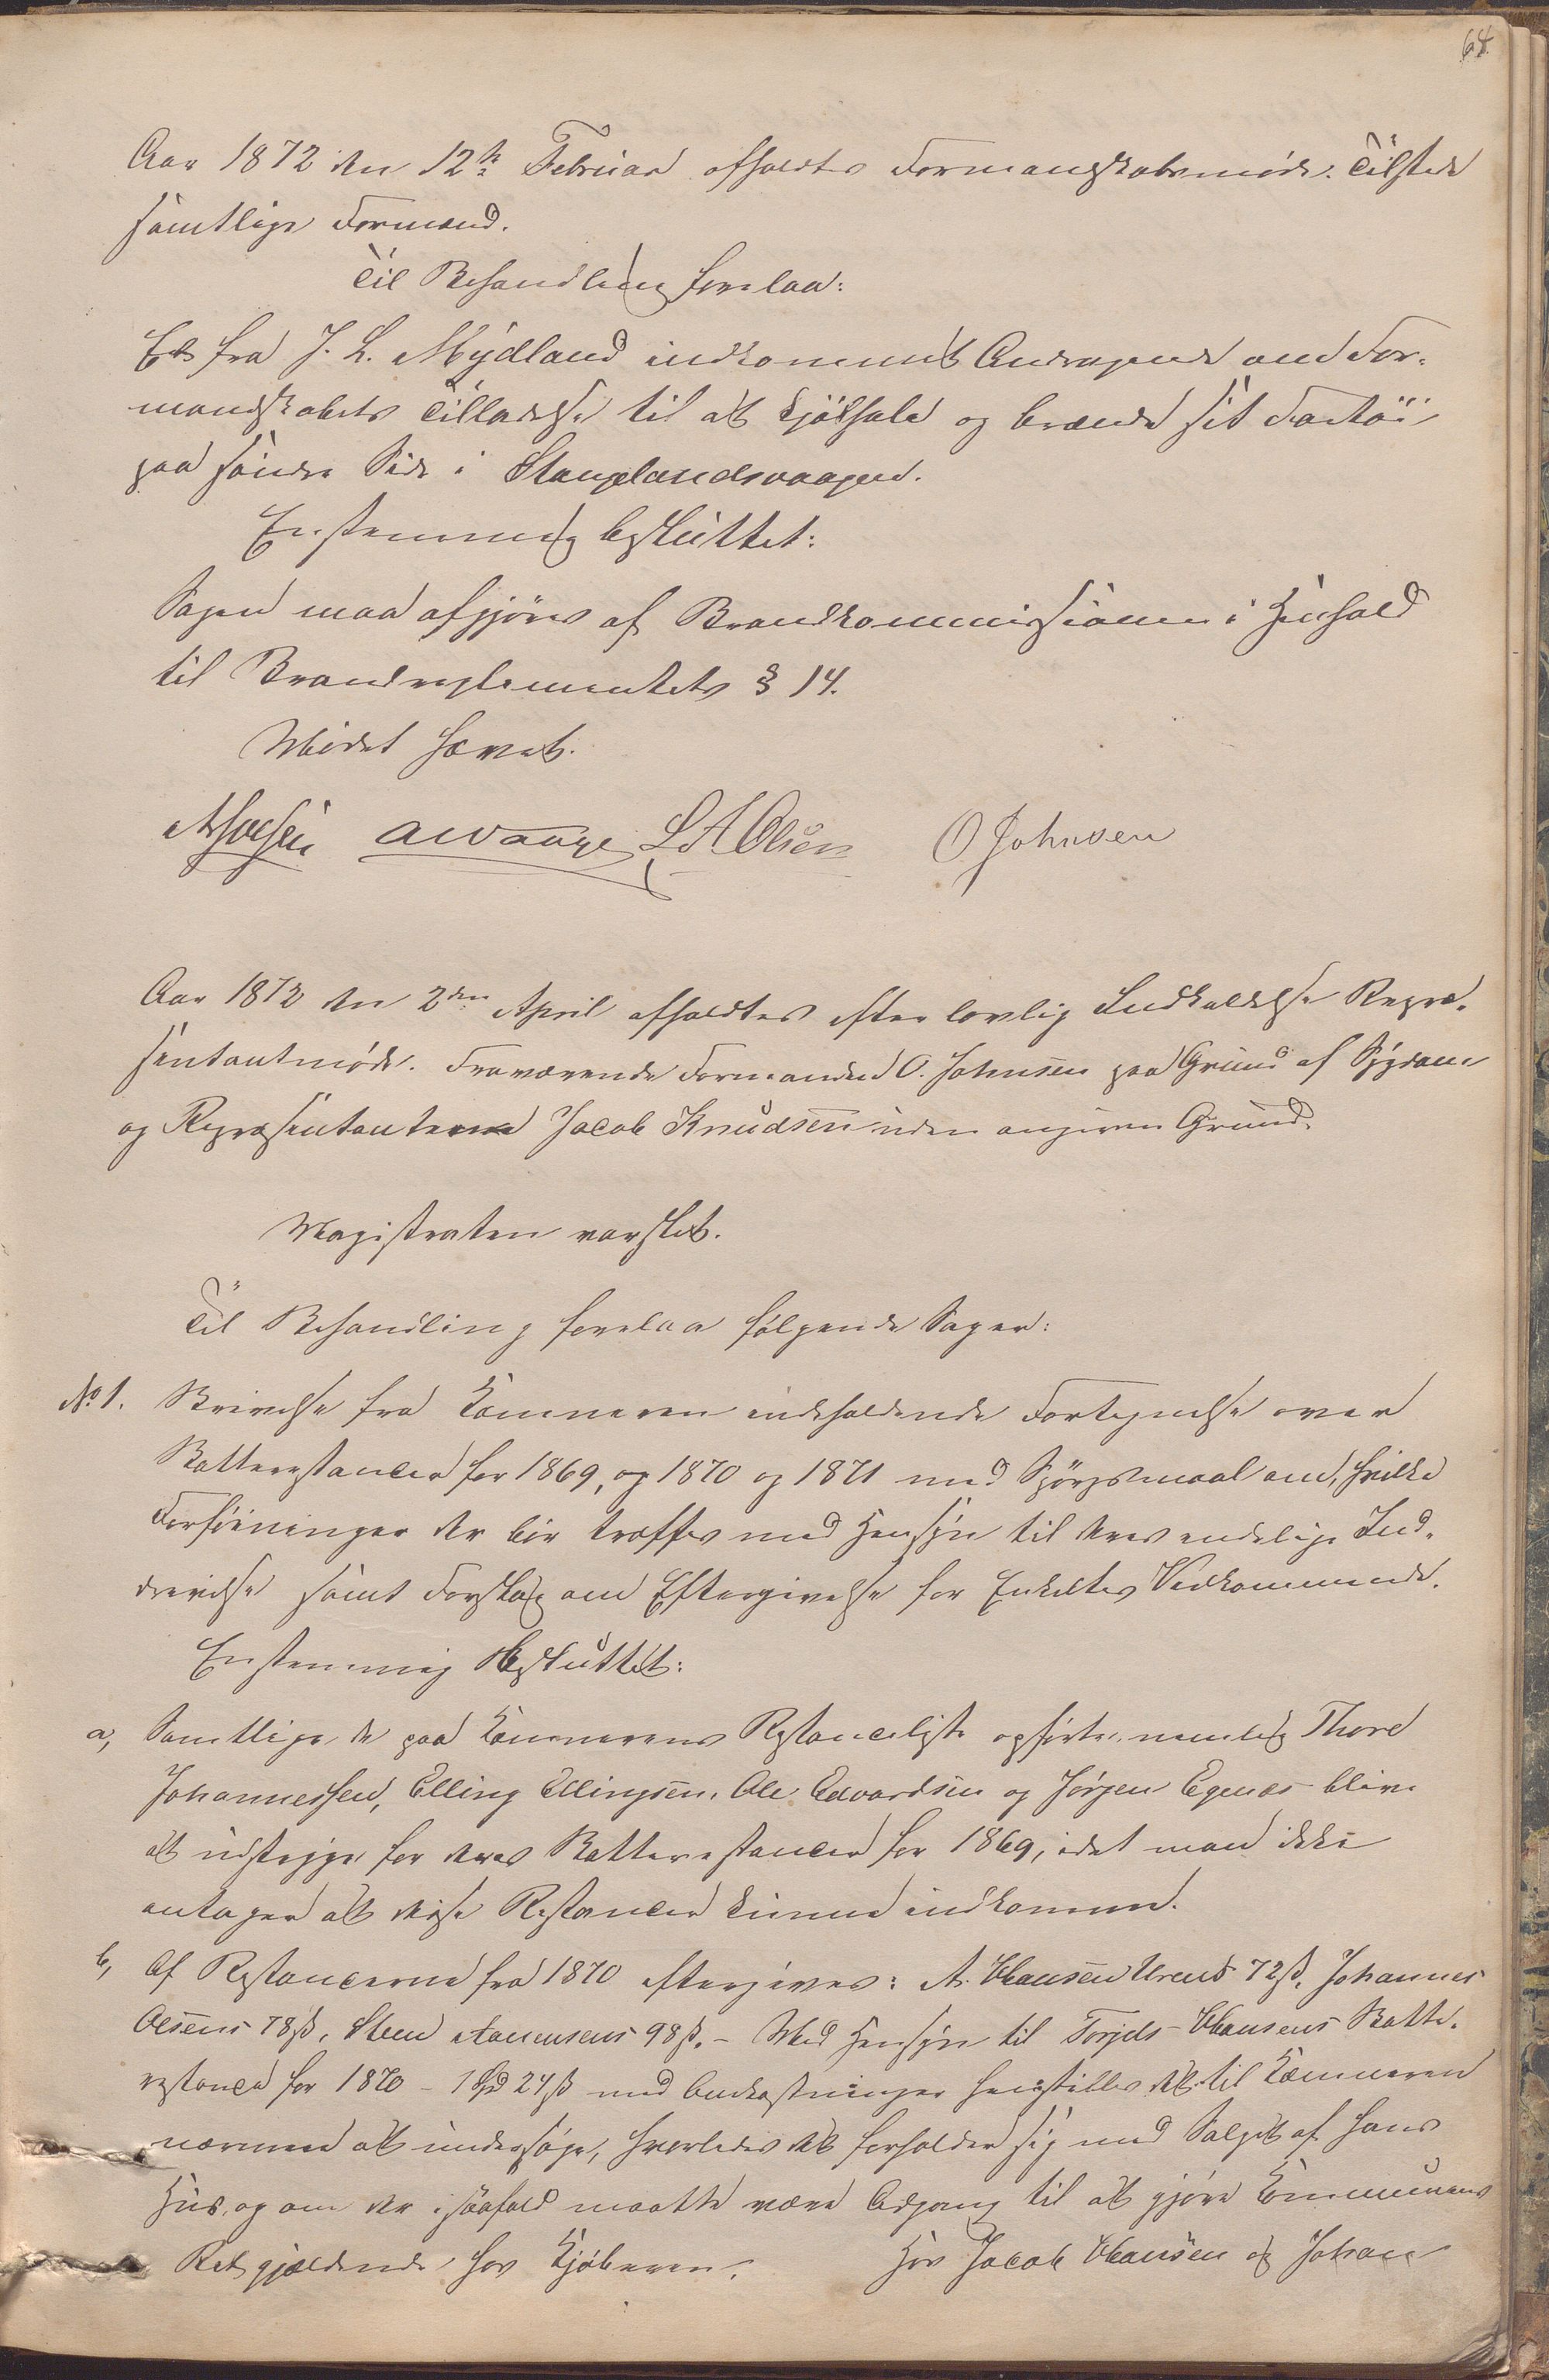 64
Aar 1872 den 12te Februar afholdtes Formandskabsmøde. Tilstede
samtlige Formænd.
Til Behandling forelaa:
Et fra J. L. Mydland indkommet Andragende om For-
mandskabets Tilladelse til at kjølhale og brænde sit Fartøi
paa søndre Side i Stangelandsvaagen.
Enstemmig besluttet:
Sagen maa afgjøres af Brandkommissionen i Henhold
til Brandreglementets § 14.
Mødet hævet.
AWaage L A Olsen O Johnsen
Aar 1872 den 2den April afholdtes efter lovlig Indkaldelse Repræ-
sentantmøde. Fraværende Formanden O. Johnsen paa Grund af Sygdom
og Repræsentanterne Jacob Knudsen uden angiven Grund.
Magistraten varslet.
Til Behandling forelaa følgende Sager:
No 1. Skrivelse fra Kæmneren indeholdende Fortegnelse over
Skatterestancer for 1869, og 1870 og 1871 med Spørgsmaal om, hvilke
Forføininger der bør træffes med Hensyn til deres endelige Ind-
drivelse samt Forslag om Eftergivelse for Enkeltes Vedkommende.
Enstemmig Besluttet:
a, Samtlige de paa Kæmnerens Restanceliste opførte, nemlig Thore
Johannessen, Elling Ellingsen, Ole Edvardsen og Jørgen Egenæs blive
at udstryge for deres Skatterestancer for 1869, idet man ikke
antager at disse Restancer kunne indkomme.
b, Af Restancerne fra 1870 eftergives: A. Hansen 72 ß, Johannes
Olsens 78 ß, Steen Aanensens 98 ß. - Med Hensyn til Torjels Hansens Skatte-
restance for 1870 - 1 Spd 24 ß med Omkostninger henstilles det til Kæmneren
nærmere at undersøge, hvorledes det forholder sig med Salget af hans
Huus, og om der i saafald maatte være Adgang til at gjøre Kommunens
Ret gjældende hos Kjøberen. For Jacob Hansen og Johan